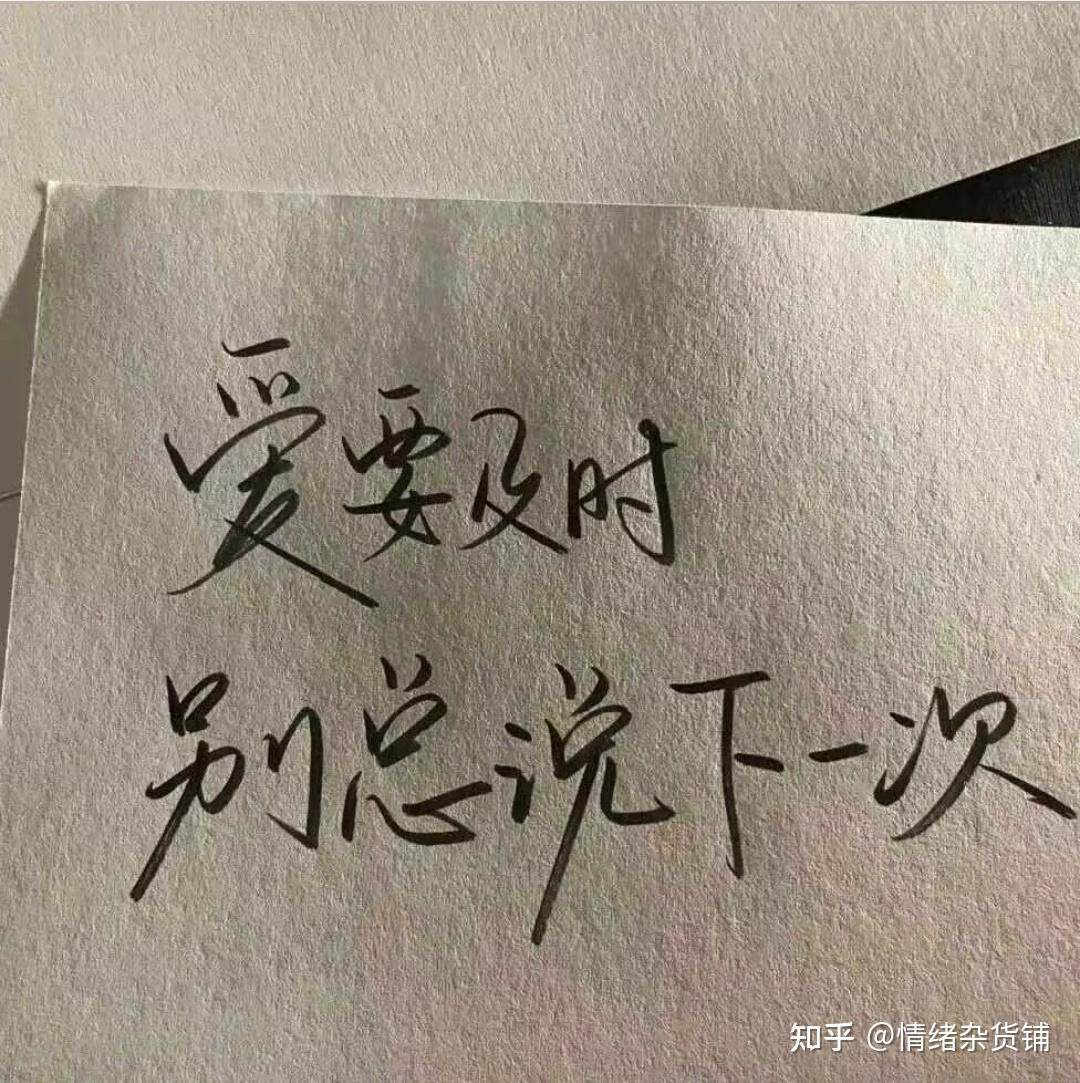 爱要及时
别总说下一次
知乎 @情绪杂货铺